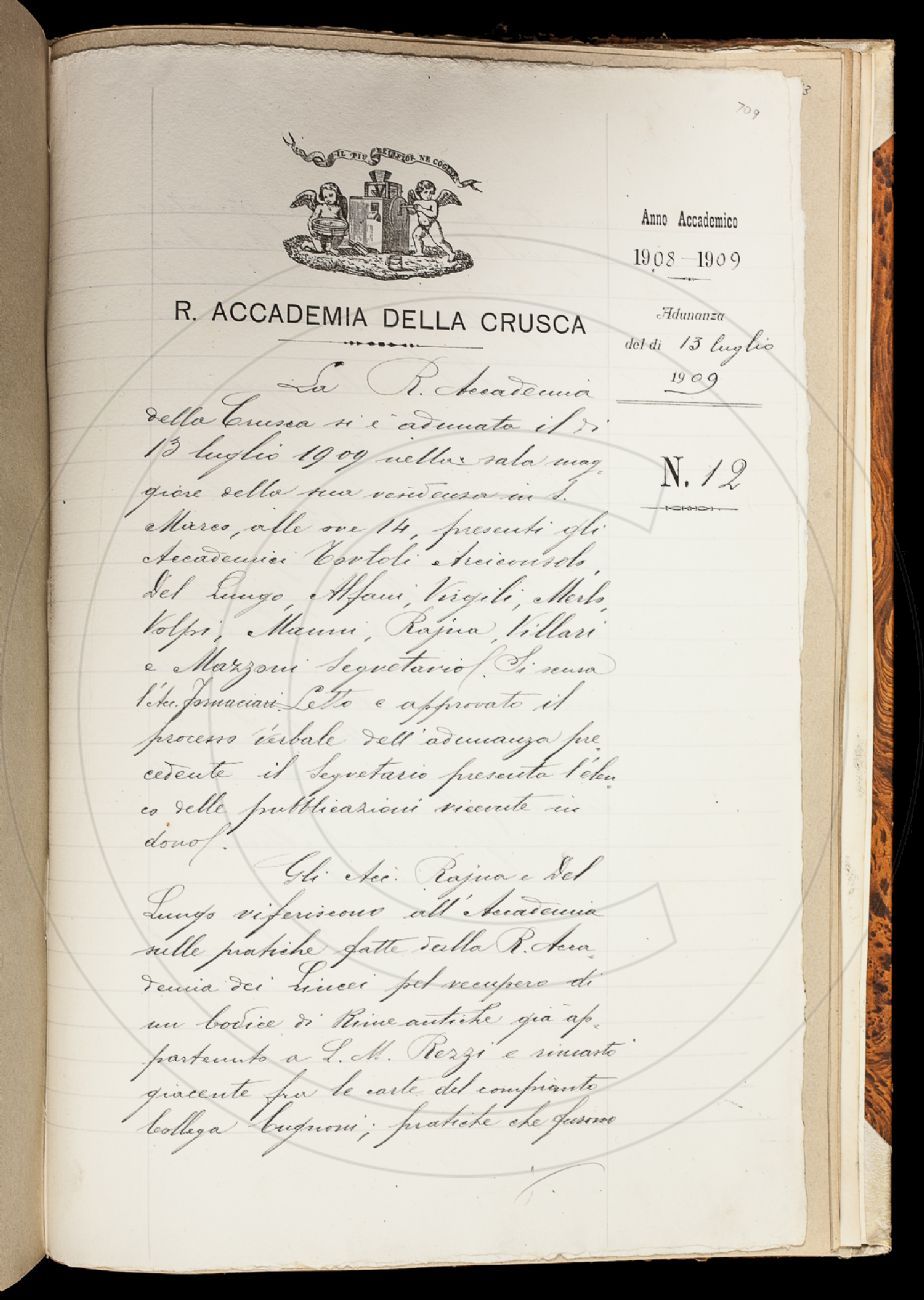 709
IL PIÙ BEL FIOR NE COGLIE
Anno Accademico
1908-1909
R. ACCADEMIA DELLA CRUSCA
Adunanza
del dì 13 luglio
1909
N. 12
La R. Accademia
della Crusca si è adunata il dì
13 luglio 1909 nella sala mag-
giore della sua residenza in S.
Marco, alle ore 14, presenti gli
Accademici Tortoli Arciconsolo,
Del Lungo, Alfani, Virgili, Merlo,
Volpi, Manni, Rajna, Villari
e Mazzoni Segretario. Si scusa
l'Acc. Fornaciari. Letto e approvato il
processo verbale dell'adunanza pre-
cedente il Segretario presenta l'elen-
co delle pubblicazioni ricevute in
dono.
Gli Acc. Rajna e Del
Lungo riferiscono all'Accademia
sulle pratiche fatte dalla R. Acca-
demia dei Lincei pel recupero di
un Codice di Rime antiche già ap-
partenuto a L. M. Rezzi e rimasto
giacente fra le carte del compianto
Collega Cugnoni; pratiche che furono